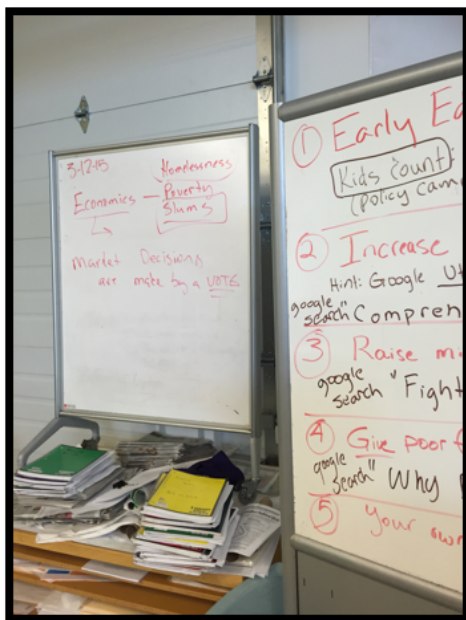 3-12-15
Homelessness
Economics — Poverty
Slums
Market Decisions
are make by a VOTE
① Early Ea
Kids Count:
(Policy camp
② Increase
Hint: Google Ut
google
search" Compren
③ Raise mi
google
search "Fight
④ Give poor f
google
search" Why
⑤ Your own